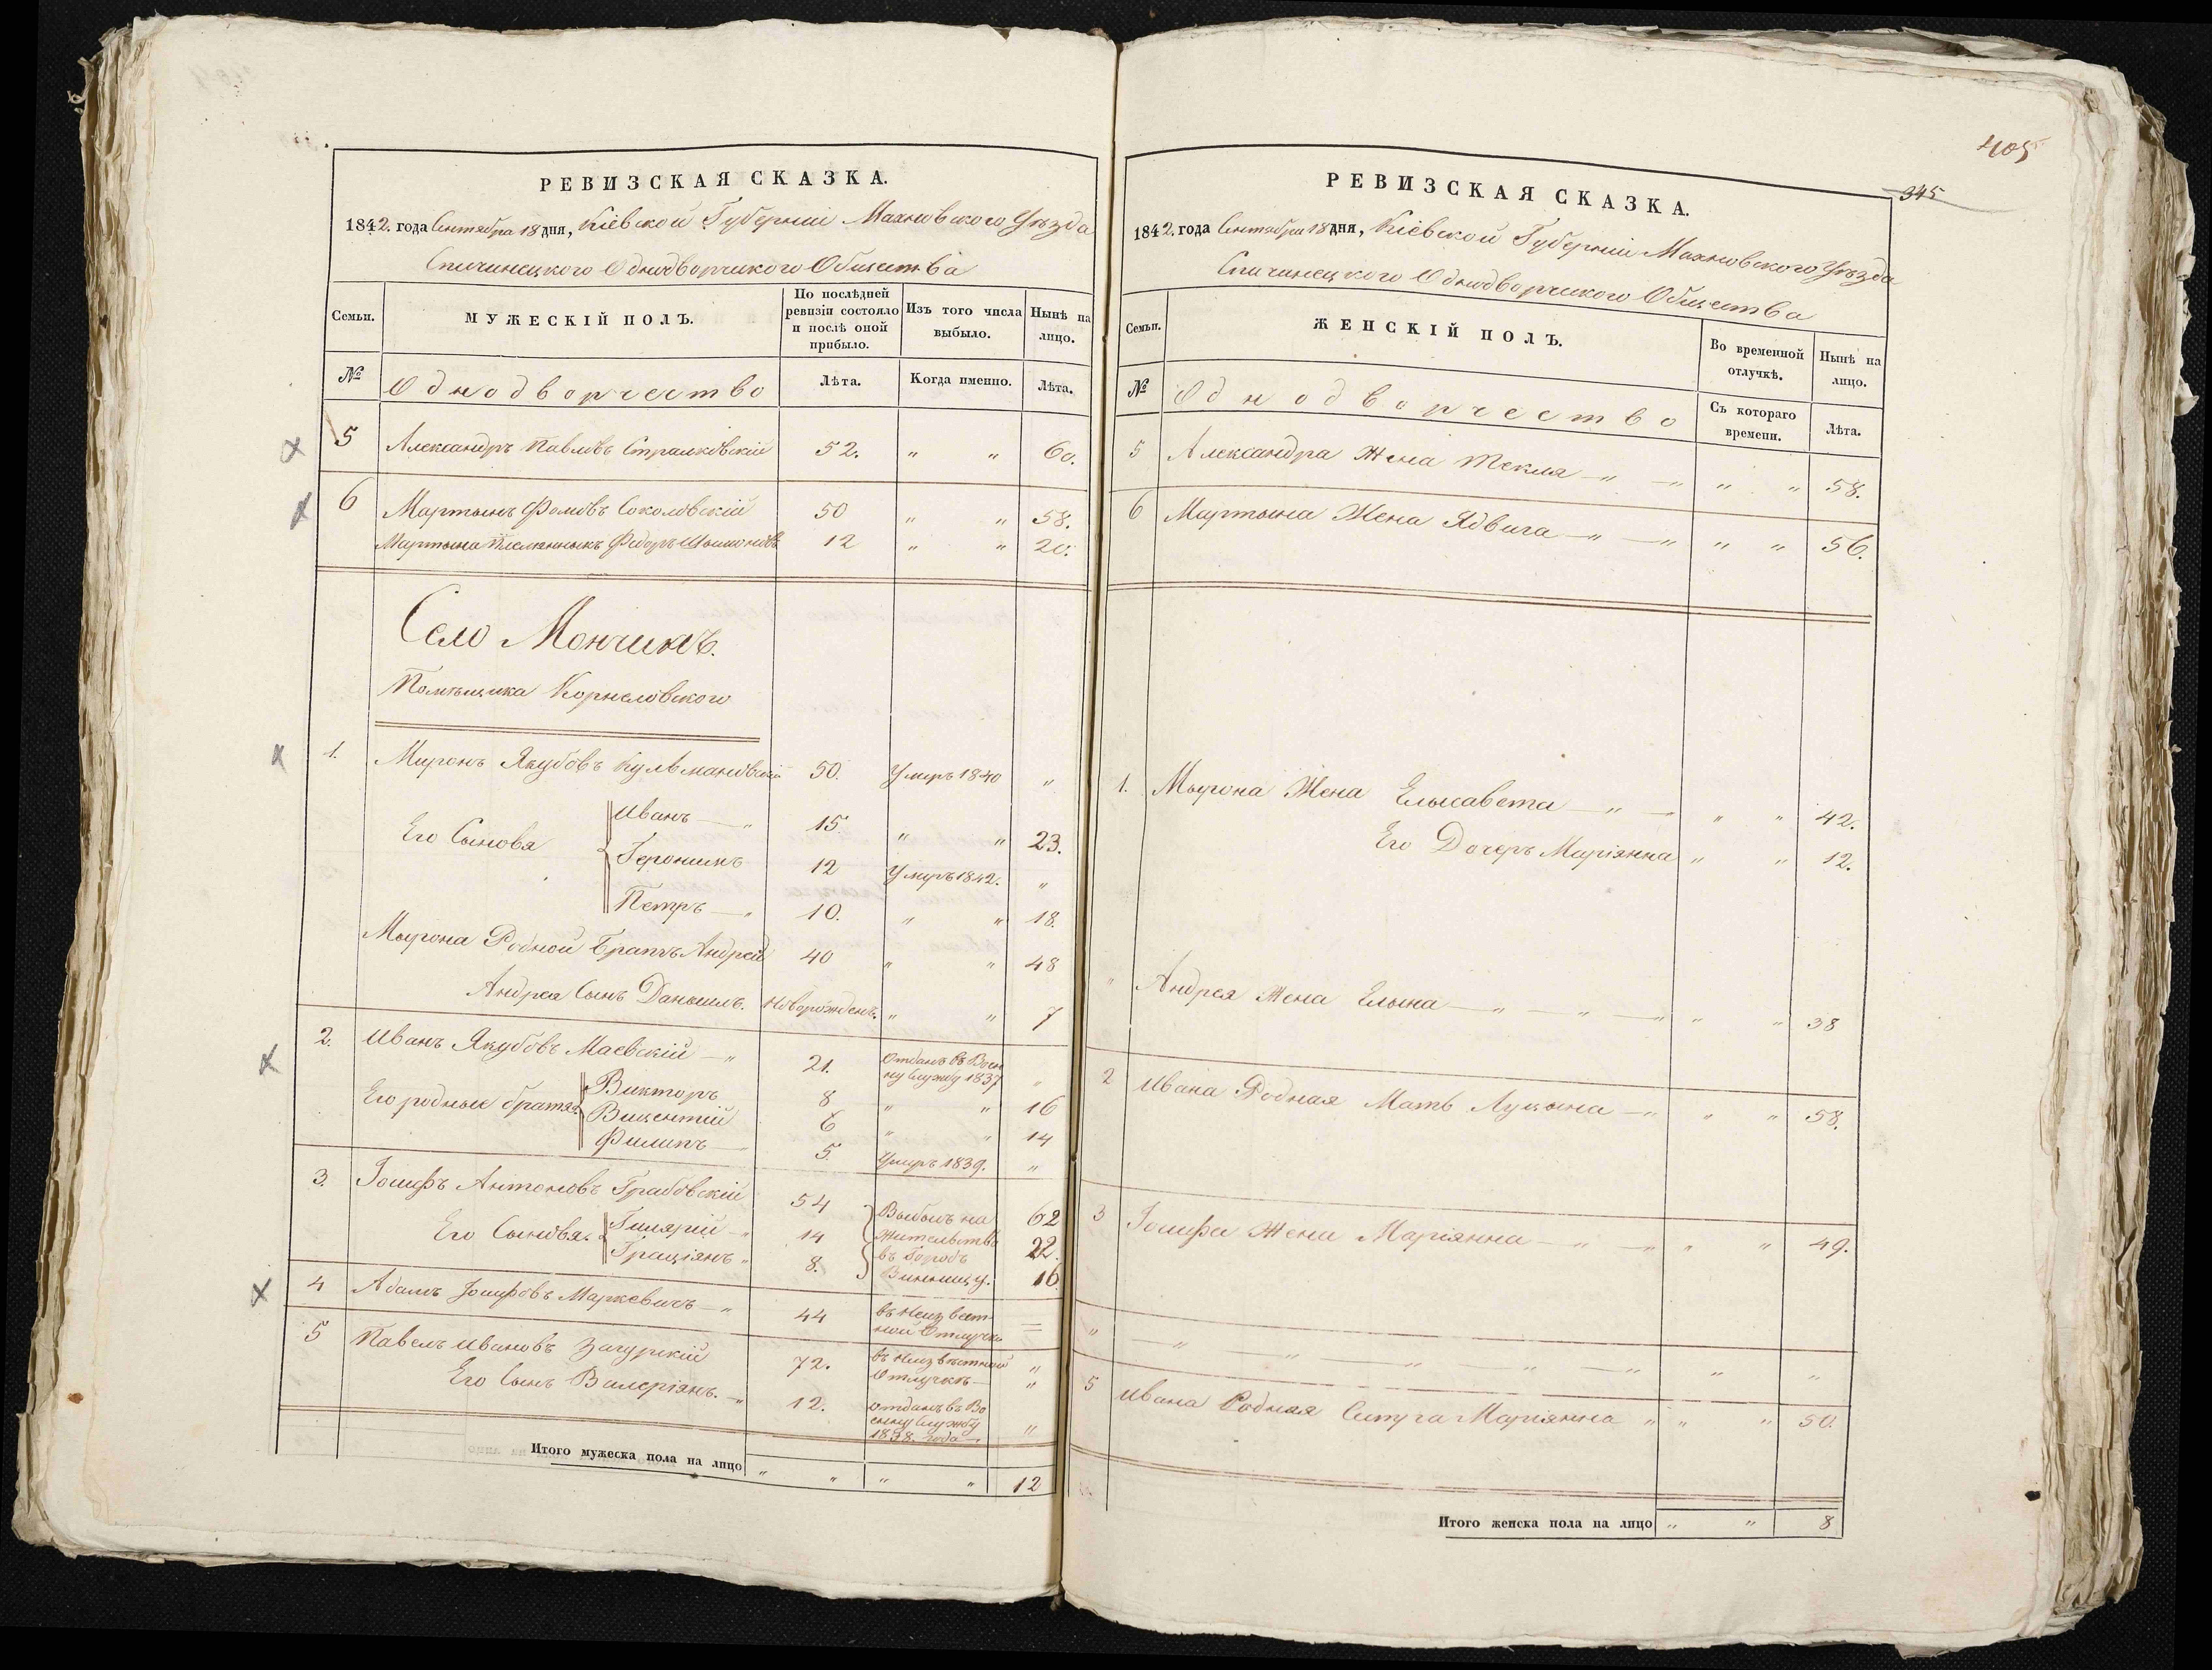 РЕВИЗСКАЯ СКАЗКА.
1842. года Сентября 18 дня, Кіевской Губерніи Махновского Уѣзда
Спичинецкого Однодворчикого Общества
Семьи.
МУЖЕСКІЙ ПОЛЪ.
По послѣдней ревизіи состояло и послѣ оной прибыло.
Изъ того числа выбыло.
Нынѣ на лицо.
№
Однодворчество
Лѣта.
Когда именно.
Лѣта.
5 Александръ Павловъ Стралковскій 52. " " 60.
6 Мартынъ Фомовъ Соколовскій 50 " " 58.
Мартына племянныкъ Федоръ Шымоновъ 12 " " 20.
Село Мончинъ.
Помѣщика Корнеловского
1. Миронъ Якубовъ Кульмановскій 50. Умеръ 1840 "
Его Сыновя
Иванъ — " 15. " " 23.
Геронимъ 12 Умеръ 1842. "
Петръ — " 10. " " 18.
Мырона Родной Братъ Андрей 40 " " 48
Андрея Сынъ Даныилъ. Новорожденъ. " " 7
2. Иванъ Якубовъ Маевскій — " 21. Отданъ въ Воен
ну Службу 1837 "
Его родные братя
Викторъ 8 " " 16
Вицентій 6 " " 14
Филипъ — 5. Умеръ 1839. "
3. Іосифъ Антоновъ Грабовскій 54 Выбылъ на 62
Его Сыновья.
Гилярій — " 14 жительство 22.
Граціянъ " 8. въ Городъ
Винницу. 16
4 Адамъ Іосифовъ Маркевичъ — " 44 въ Неизвест
ной Отлучке =
5 Павелъ Ивановъ Загурскій 72. въ Неизвѣстной "
Отлучкѣ — "
Его Сынъ Валеріянъ. — " 12. отданъ въ Во
енну Службу
1838. года — "
Итого мужеска пола на лицо " " " " 12
405
345
РЕВИЗСКАЯ СКАЗКА.
1842. года Сентября 18 дня, Кіевской Губерніи Махновского Уѣзда
Спичинецкого Однодворчикого Общества
Семьи.
ЖЕНСКІЙ ПОЛЪ.
Во временной отлучкѣ.
Нынѣ на лицо.
№
Однодворчество
Съ котораго времени.
Лѣта.
5 Александра Жена Текля — " — " " " 58.
6 Мартына Жена Ядвига — " — " " " 56.
1. Мырона Жена Елысавета — " — " " 42.
Его Дочерь Маріянна " " 12.
" Андрея Жена Елына — " — " — " " " 38
2 Ивана Родная Мать Луцына — " " " 58.
3 Іосифа Жена Маріянна — " — " " " 49.
" — " — " — " — " " "
5 Ивана Родная Систра Маріянна " " " 50.
Итого женска пола на лицо " " 8